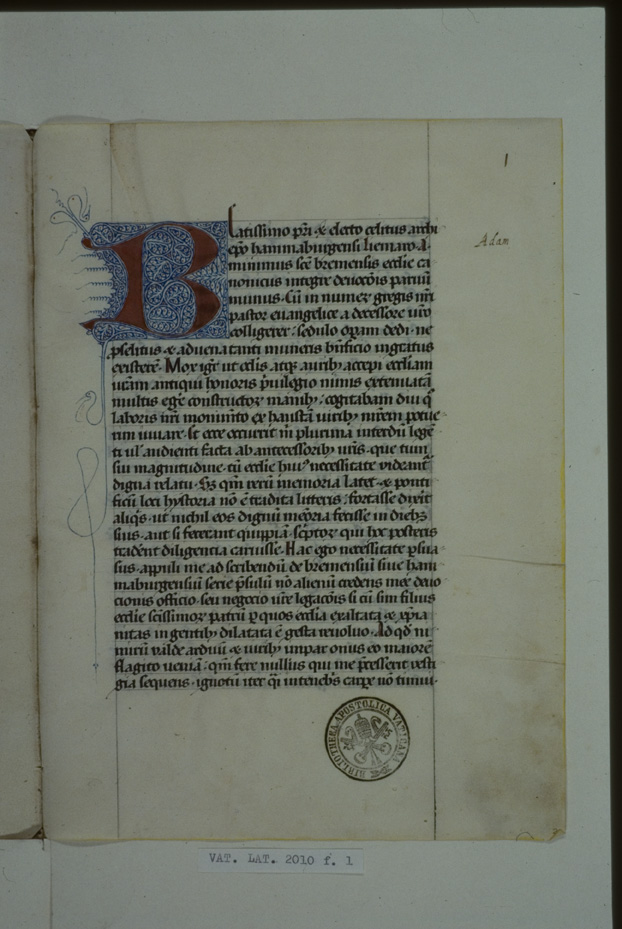 1
Adam
Blatissimo pri ⁊ electo celitus archi
epo hammaburgensi liemaro A
minimus sce bremensis ecclie ca
nonicus integre deuocois paruu
munus. Cu in numeꝝ gregis uri
pastor euangelice a decessore uro
colligerer. sedulo opam dedi. ne
pselitus ⁊ aduena tanti muneris bnficio ingratus
existere. Mox igr ut oclis atqꝫ auribꝫ accepi eccliam
uram antiqui honoris puilegio nimis extenuata
multis ege constructoꝝ manibꝫ. cogitabam diu q
laboris nri monimto exhausta uiribꝫ mrem potue
rim iuuare. et ecce occurrit m plurima interdu lege
ti ul' audienti facta ab antecessoribꝫ uris. que tum
sui magnitudine. tu ecclie huiꝰ necessitate videant
digna relatu. Sꝫ qm reru memoria latet ⁊ ponti
ficu loci hystoria no e tradita litteris. fortasse dixit
aliqs. ut nichil eos dignu meoria fecisse in diebꝫ
suis. aut si fecerant quippia. sc̄ptoꝝ qui hoc posteris
tradent diligencia caruisse. Hac ego necessitate psua
sus. appuli me ad scribendu de bremensiu siue ham
maburgensiu serie psulu. no alienu credens mee deuo
cionis officio. seu negocio ure legacois si cu sim filius
ecclie scissimoꝝ patru p quos ecclia exaltata ⁊ xpia
nitas in gentibꝫ dilatata e gesta reuoluo. Ad qd ni
miru valde arduu ⁊ uiribꝫ impar onus eo maiore
flagito uenia. qm fere nullius qui me pcesserit vesti
gia sequens. ignotu iter qi in tenebris carpe no timui.
BIBLIOTHECA APOSTOLICA VATICANA
VAT. LAT. 2010 f. 1